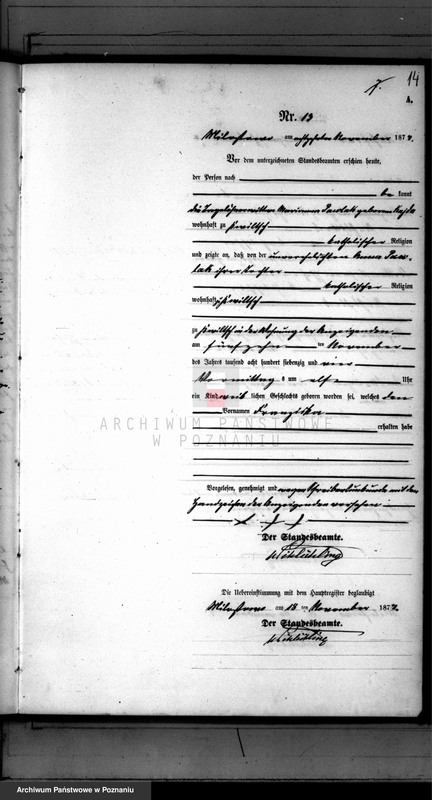 7.
14
A.
Nr. 13
Milostowo am achtzehnten November 1874.
Vor dem unterzeichneten Standesbeamten erschien heute,
der Person nach
be kannt
die
geborene
wohnhaft zu Kwiltsch
katholischer Religion
und zeigte an, daß von der unverehelichten Anna Paw-
lak ihrer Tochter
katholischer Religion
wohnhaft zu Kwiltsch
zu Kwiltsch in der Wohnung der Anzeigenden
am fünfzehn ten November
des Jahres tausend acht hundert siebenzig und vier
Vormittag s um elf Uhr
ein Kind weib lichen Geschlechts geboren worden sei, welches den
Vornamen Franziska
erhalten habe
ARCHIWUM PAŃSTWOWE
W POZNANIU
Vorgelesen, genehmigt und wegen Schreibensunkunde mit den
Handzeichen der Anzeigenden versehen
Der Standesbeamte.
Die Uebereinstimmung mit dem Hauptregister beglaubigt
Milostowo am 18 ten November 1874.
Der Standesbeamte.
Archiwum Państwowe w Poznaniu